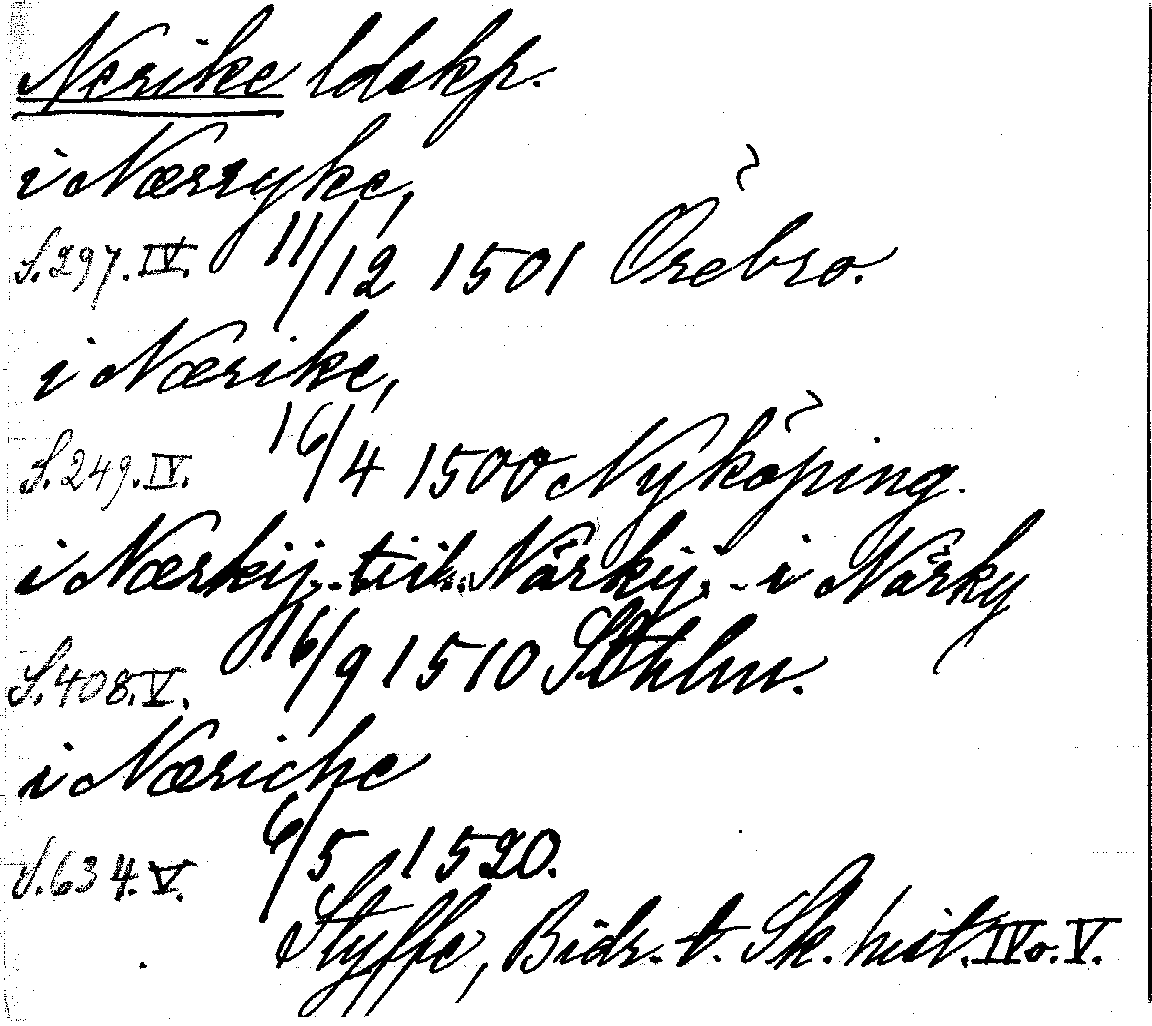 Nerike ldskp.
i Nærryke,
S. 297. IV. 11/12 1501 Örebro.
i Nærike,
S. 249. IV. 16/4 1500 Nyköping.
i Nærkij - - til - - Närkij, - - i Närky
S. 408. V. 16/9 1510 Sthlm.
i Næriche
S. 634. V. 6/5 1520.
Styffe, Bidr. t. Sk. hist. IV o. V.